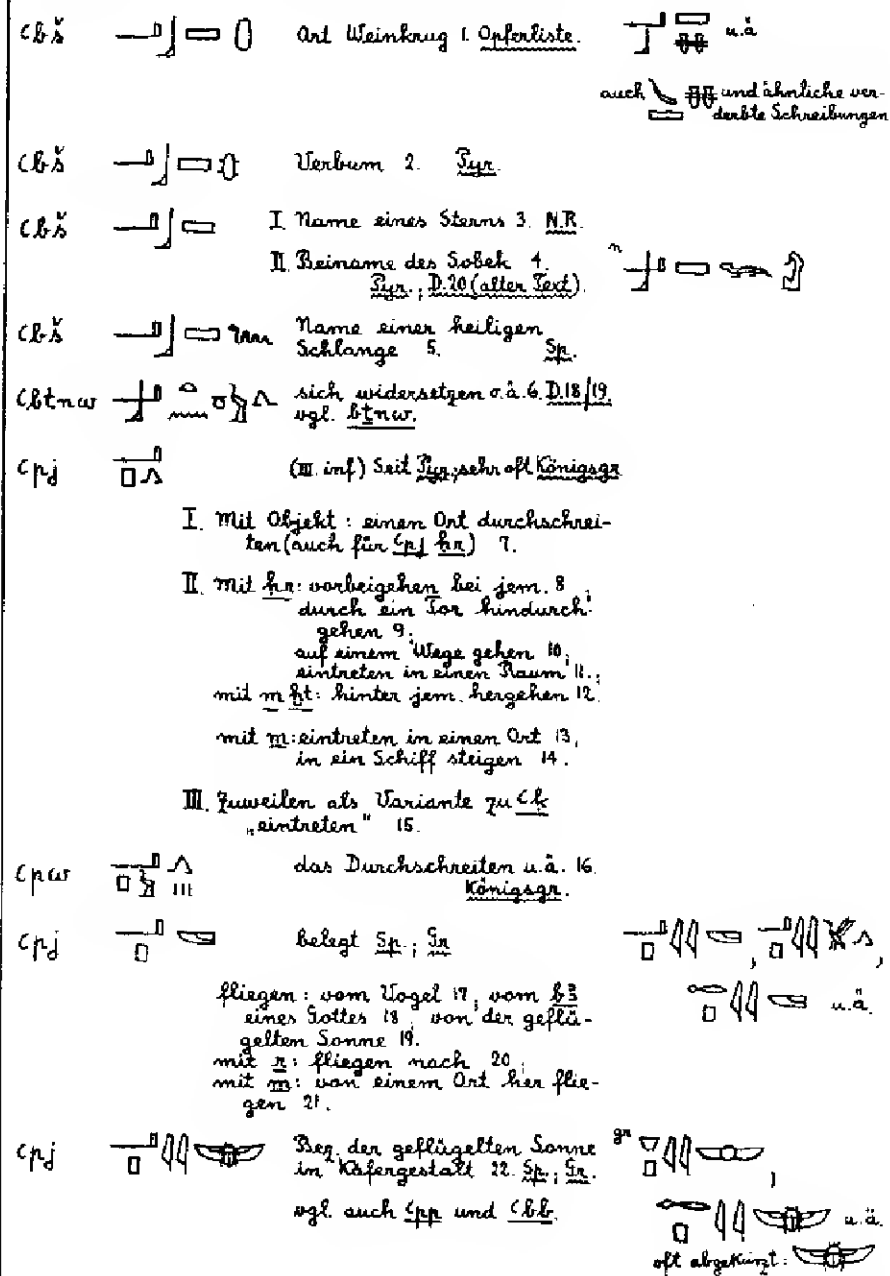 ꜥbš Art Weinkrug 1. Opferliste. u.ä
auch und ähnliche ver-
derbte Schreibungen
ꜥbš Verbum 2. Pyr.
ꜥbš I. Name eines Sterns 3. N.R.
II. Beiname des Sobek 4. n
Pyr.; D.20 (alter Text).
ꜥbš Name einer heiligen
Schlange 5. Sp.
ꜥbtnw sich widersetzen o.ä. 6. D.18/19.
vgl. bṯnw.
ꜥpj (III. inf) Seit Pyr; sehr oft Königsgr
I. Mit Objekt: einen Ort durchschrei-
ten (auch für ꜥpj ḥr) 7.
II. Mit ḥr: vorbeigehen bei jem. 8,
durch ein Tor hindurch-
gehen 9;
auf einem Wege gehen 10;
eintreten in einen Raum 11.;
mit m ḫt: hinter jem. hergehen 12.
mit m: eintreten in einen Ort 13,
in ein Schiff steigen 14.
III. Zuweilen als Variante zu ꜥḳ
„eintreten" 15.
ꜥpw das Durchschreiten u.ä. 16.
Königsgr.
ꜥpj belegt Sp.; Gr
fliegen: vom Vogel 17, vom bꜣ
eines Gottes 18, von der geflü- u.ä.
gelten Sonne 19.
mit r: fliegen nach 20;
mit m: von einem Ort her flie-
gen 21.
ꜥpj Bez. der geflügelten Sonne gr
in Käfergestalt 22. Sp.; Gr.
vgl. auch ꜥpp und ꜥbb. u.ä.
oft abgekürzt: